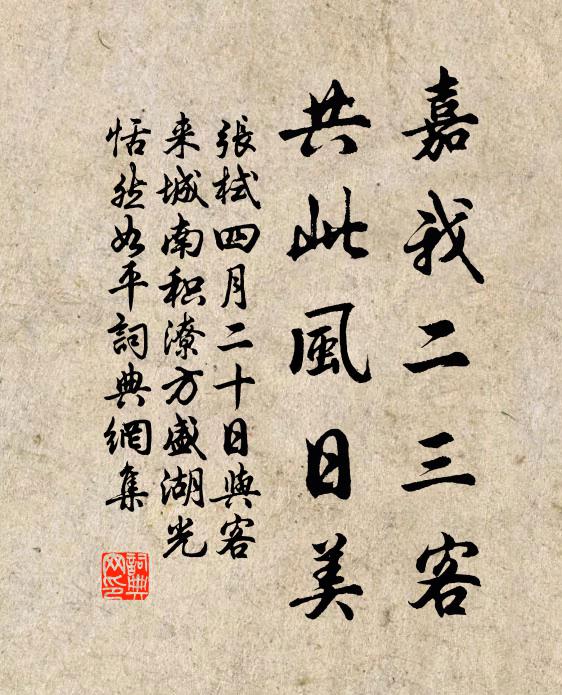 嘉我二三客
共此風日美
張栻四月二十日與客
来城南积潦方盛湖光
恬然如平詞典網集
詞典网印